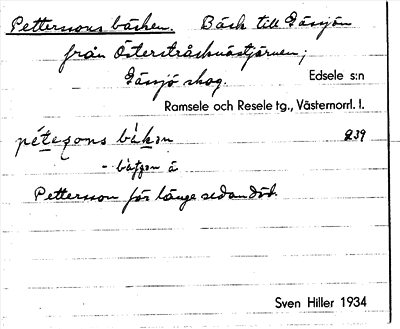 Petterssons bäcken. Bäck till Gåssjön
från Österstråsknästjärnen;
Gåssjö skog. Edsele s:n
Ramsele och Resele tg., Västernorrl. l.
239
Pettersson för länge sedan död.
Sven Hiller 1934